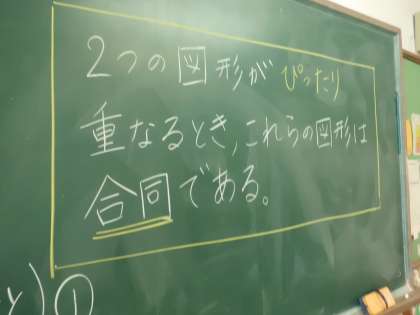 2つの図形がぴったり
重なるとき、これらの図形は
合同である。
と)①